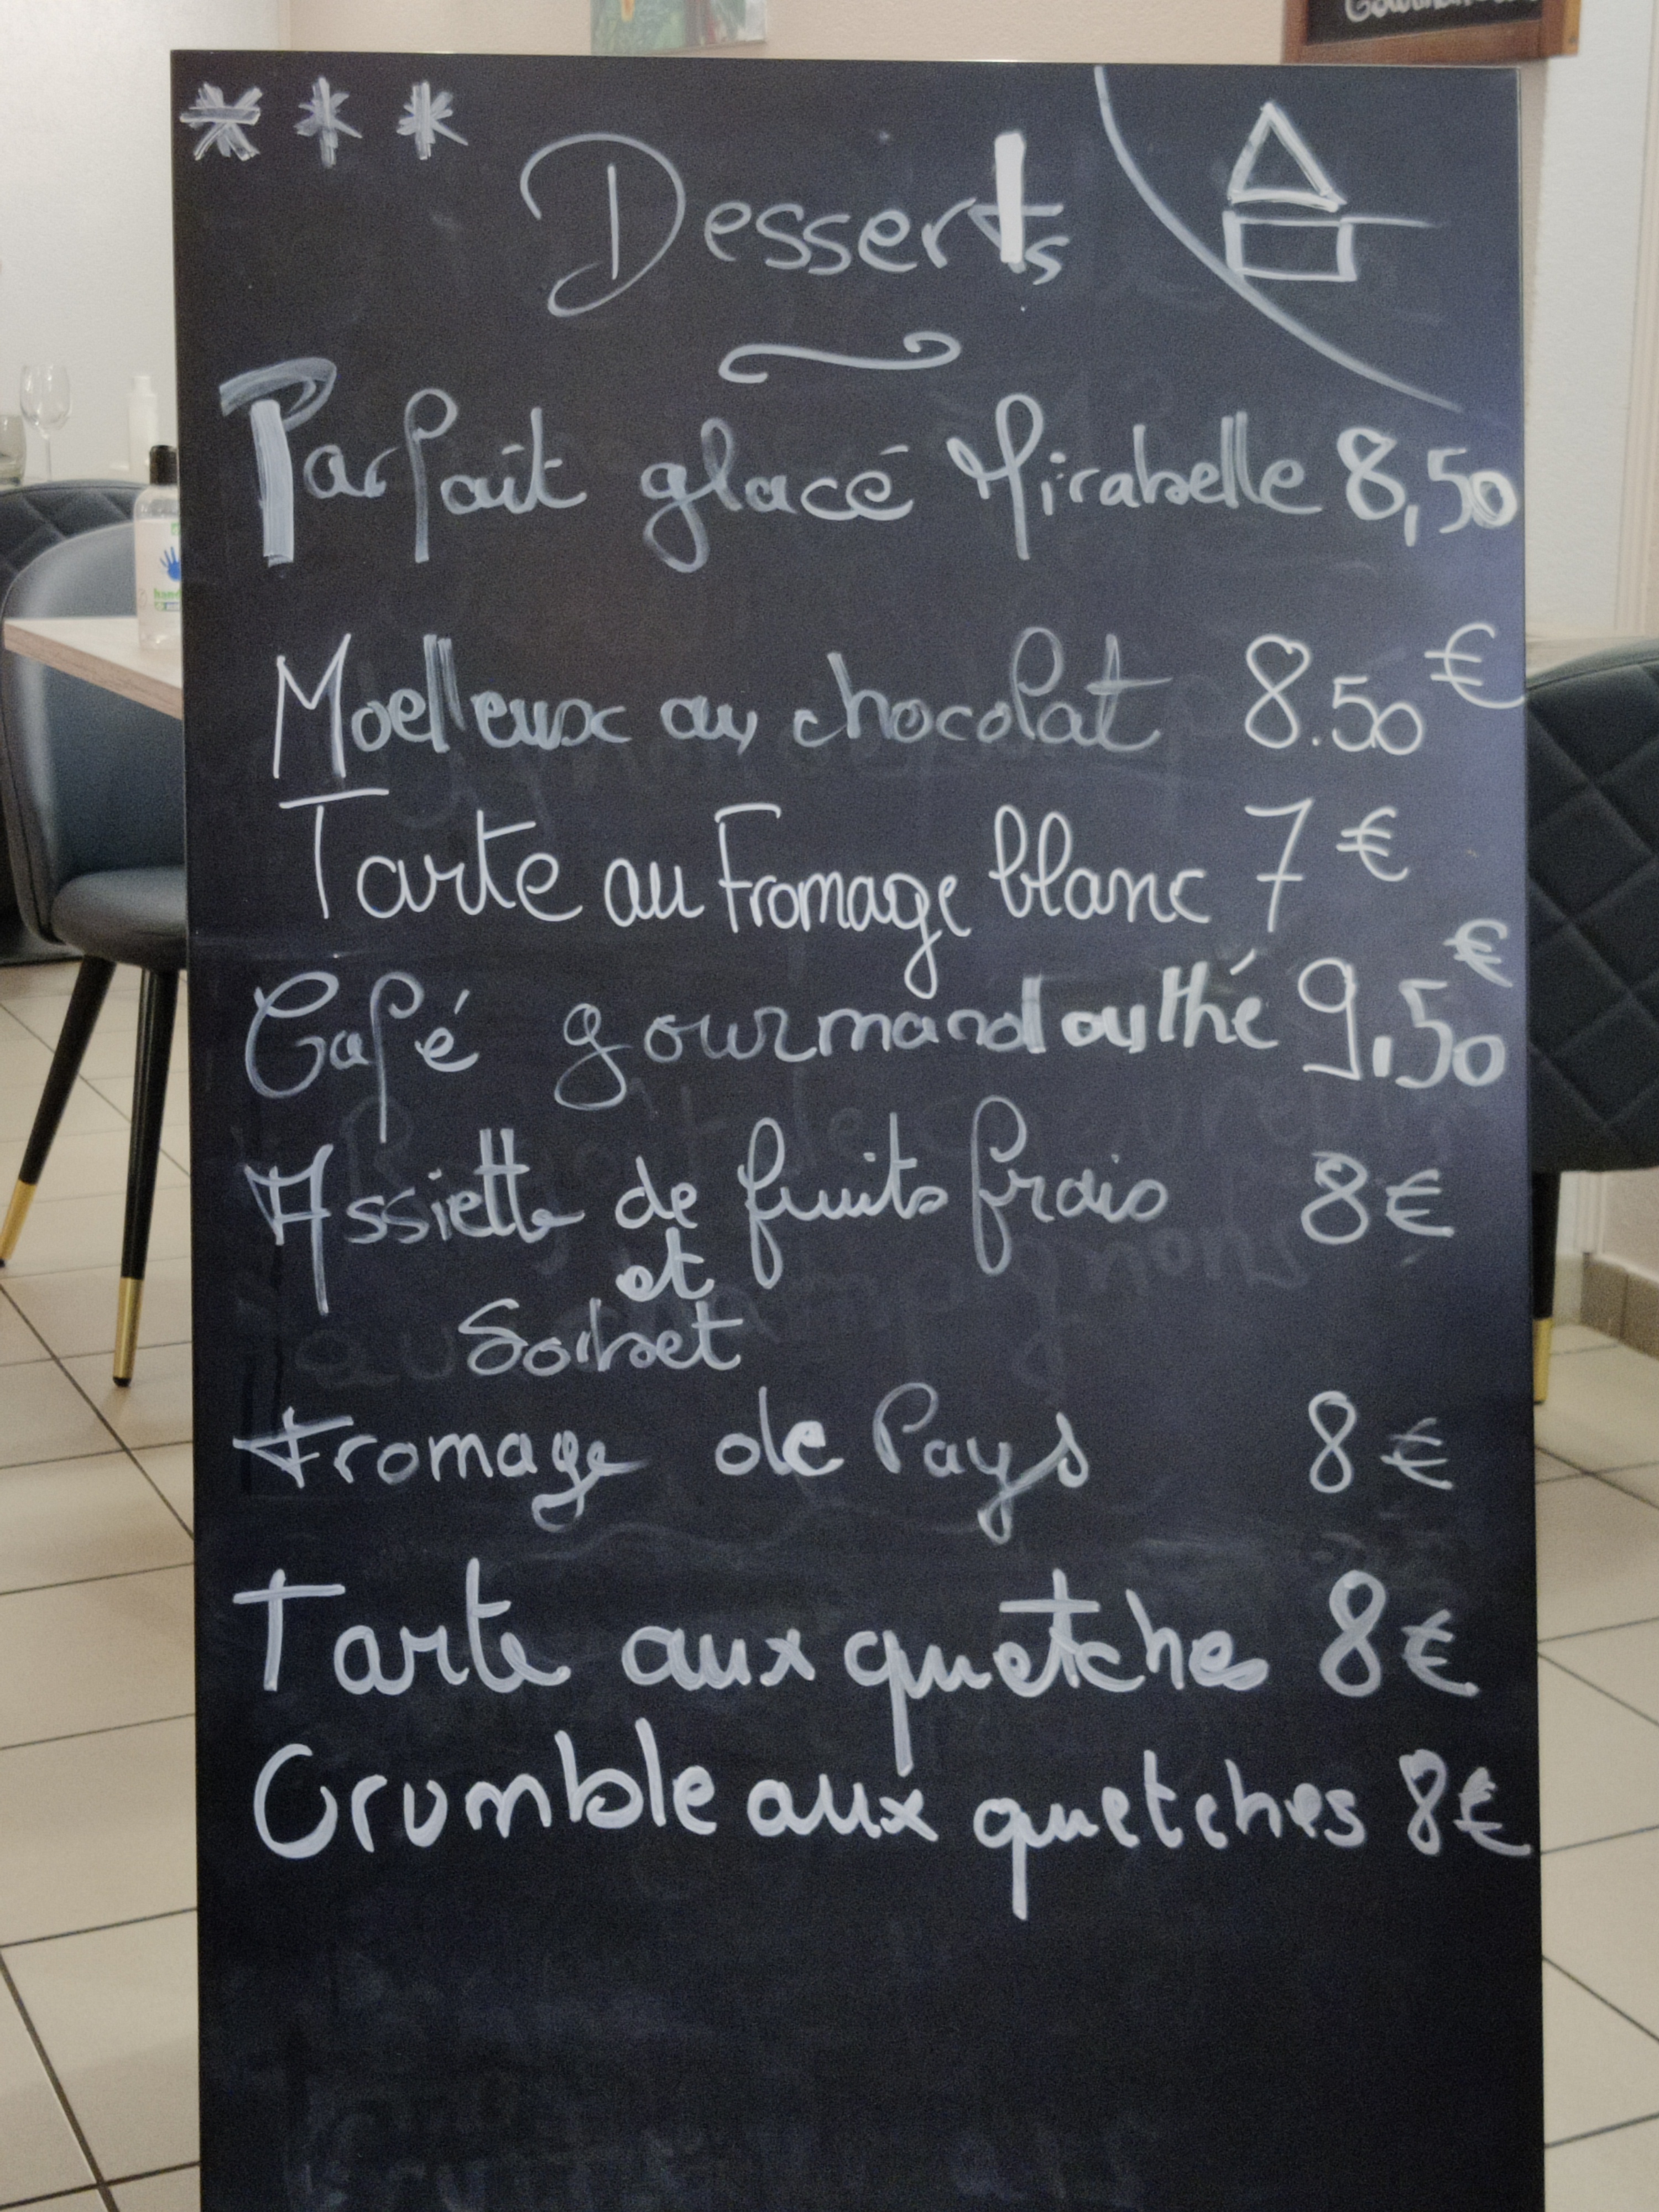 ***
Desserts
Parfait glacé Mirabelle 8,50
Moelleux au chocolat 8.50€
Tarte au Fromage blanc 7€
Café gourmand ou thé 9,50€
Assiette de fruits frais 8€
et
Sorbet
Fromage de Pays 8€
Tarte aux quetches 8€
Crumble aux quetches 8€